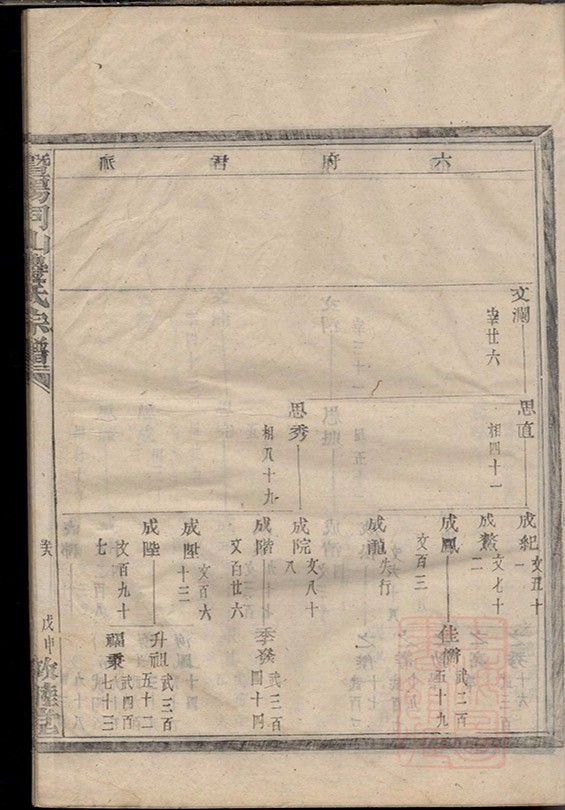 六府君派
文瀾
宰廿六
思直
相四十一
思秀
相八十九
成紀
文五十一
成鰲
文七十二
成鳳
文百三
成龍
失行
成院
文八十八
成階
文百廿六
成陞
文百六十三
成陸
文百九十七
佳儕
武二百五十九
季葵
武二百四十四
升祖
武三百五十二
福秉
武四百七十三
暨陽同山邊氏宗譜
戊申